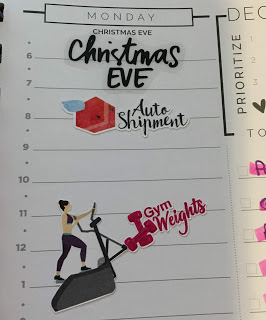 MONDAY
DEC
CHRISTMAS EVE
Christmas
EVE
PRIORITIZE
6
7
8
Auto
Shipment
9
10
11
Gym
Weights
12
1
2